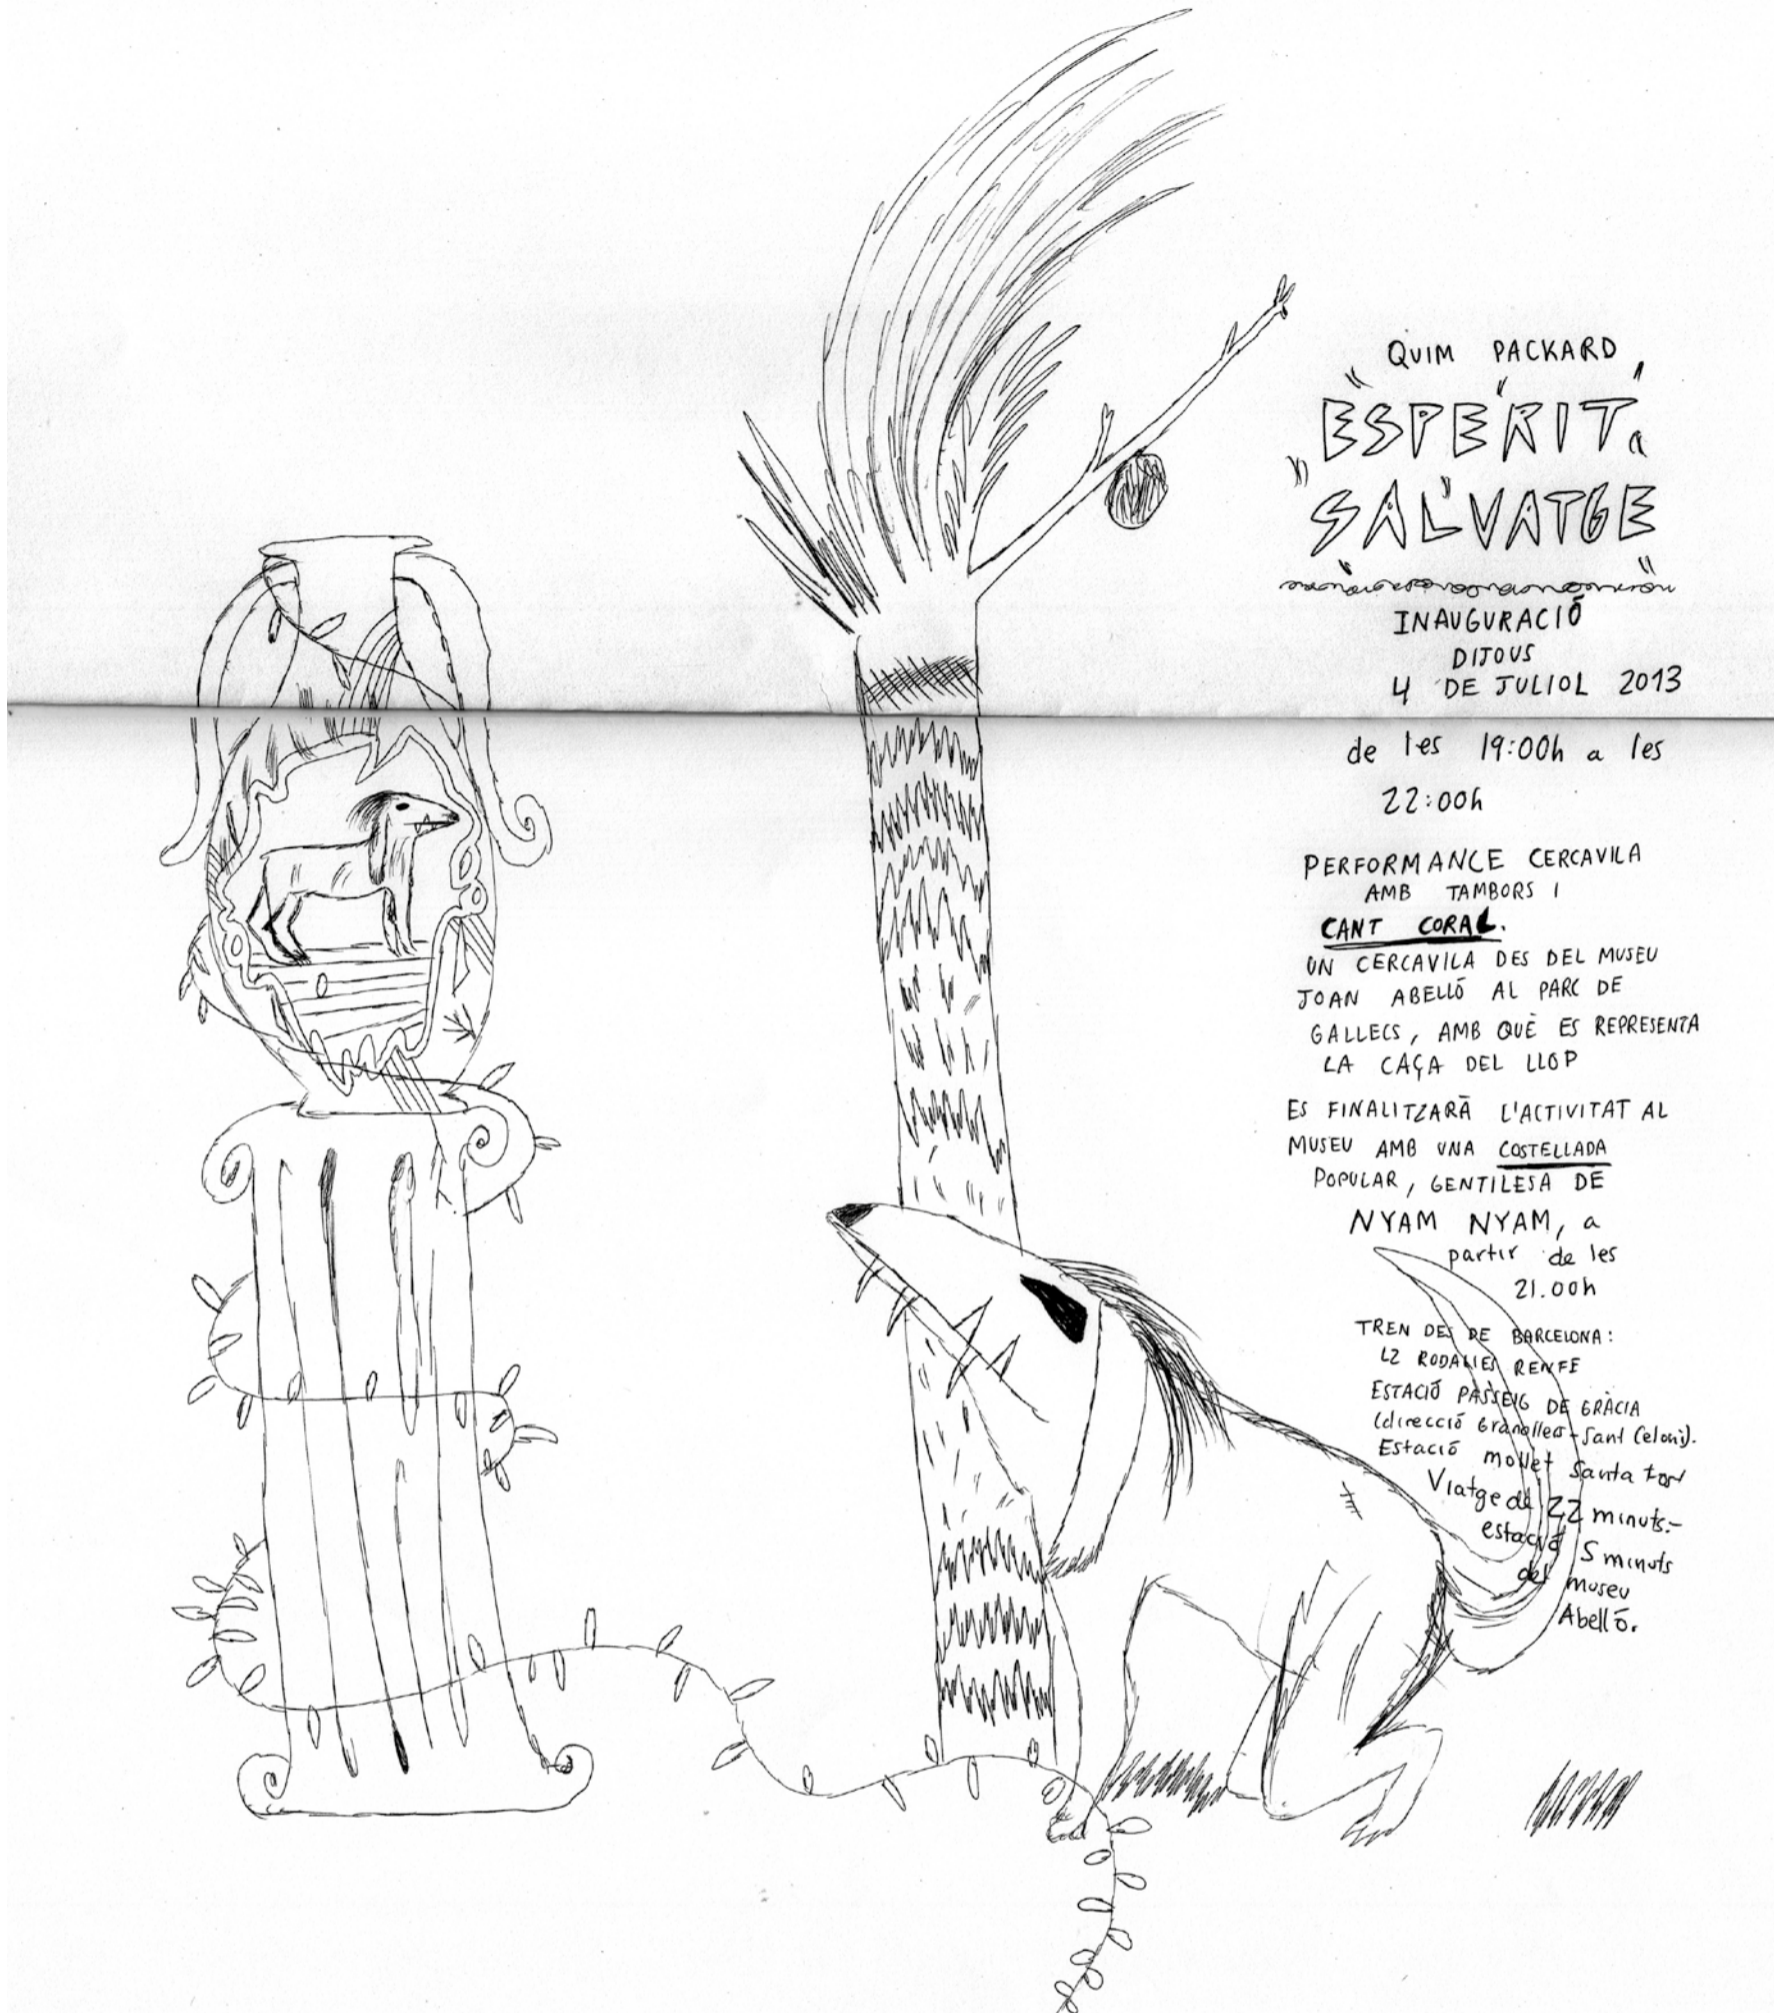 QUIM PACKARD
ESPERIT
SALVATGE
INAUGURACIÓ
DIJOUS
4 DE JULIOL 2013
de les 19:00h a les
22:00h
PERFORMANCE CERCAVILA
AMB TAMBORS I
CANT CORAL.
UN CERCAVILA DES DEL MUSEU
JOAN ABELLÓ AL PARC DE
GALLECS, AMB QUÈ ES REPRESENTA
LA CAÇA DEL LLOP
ES FINALITZARÀ L'ACTIVITAT AL
MUSEU AMB UNA COSTELLADA
POPULAR, GENTILESA DE
NYAM NYAM, a
partir de les
21.00h
TREN DES DE BARCELONA:
L2 RODALIES RENFE
ESTACIÓ PASSEIG DE GRÀCIA
(direcció Granollers-Sant Celoni).
Estació mollet Santa
Viatge de 22 minuts.-
estació 5 minuts
del museu
Abelló.